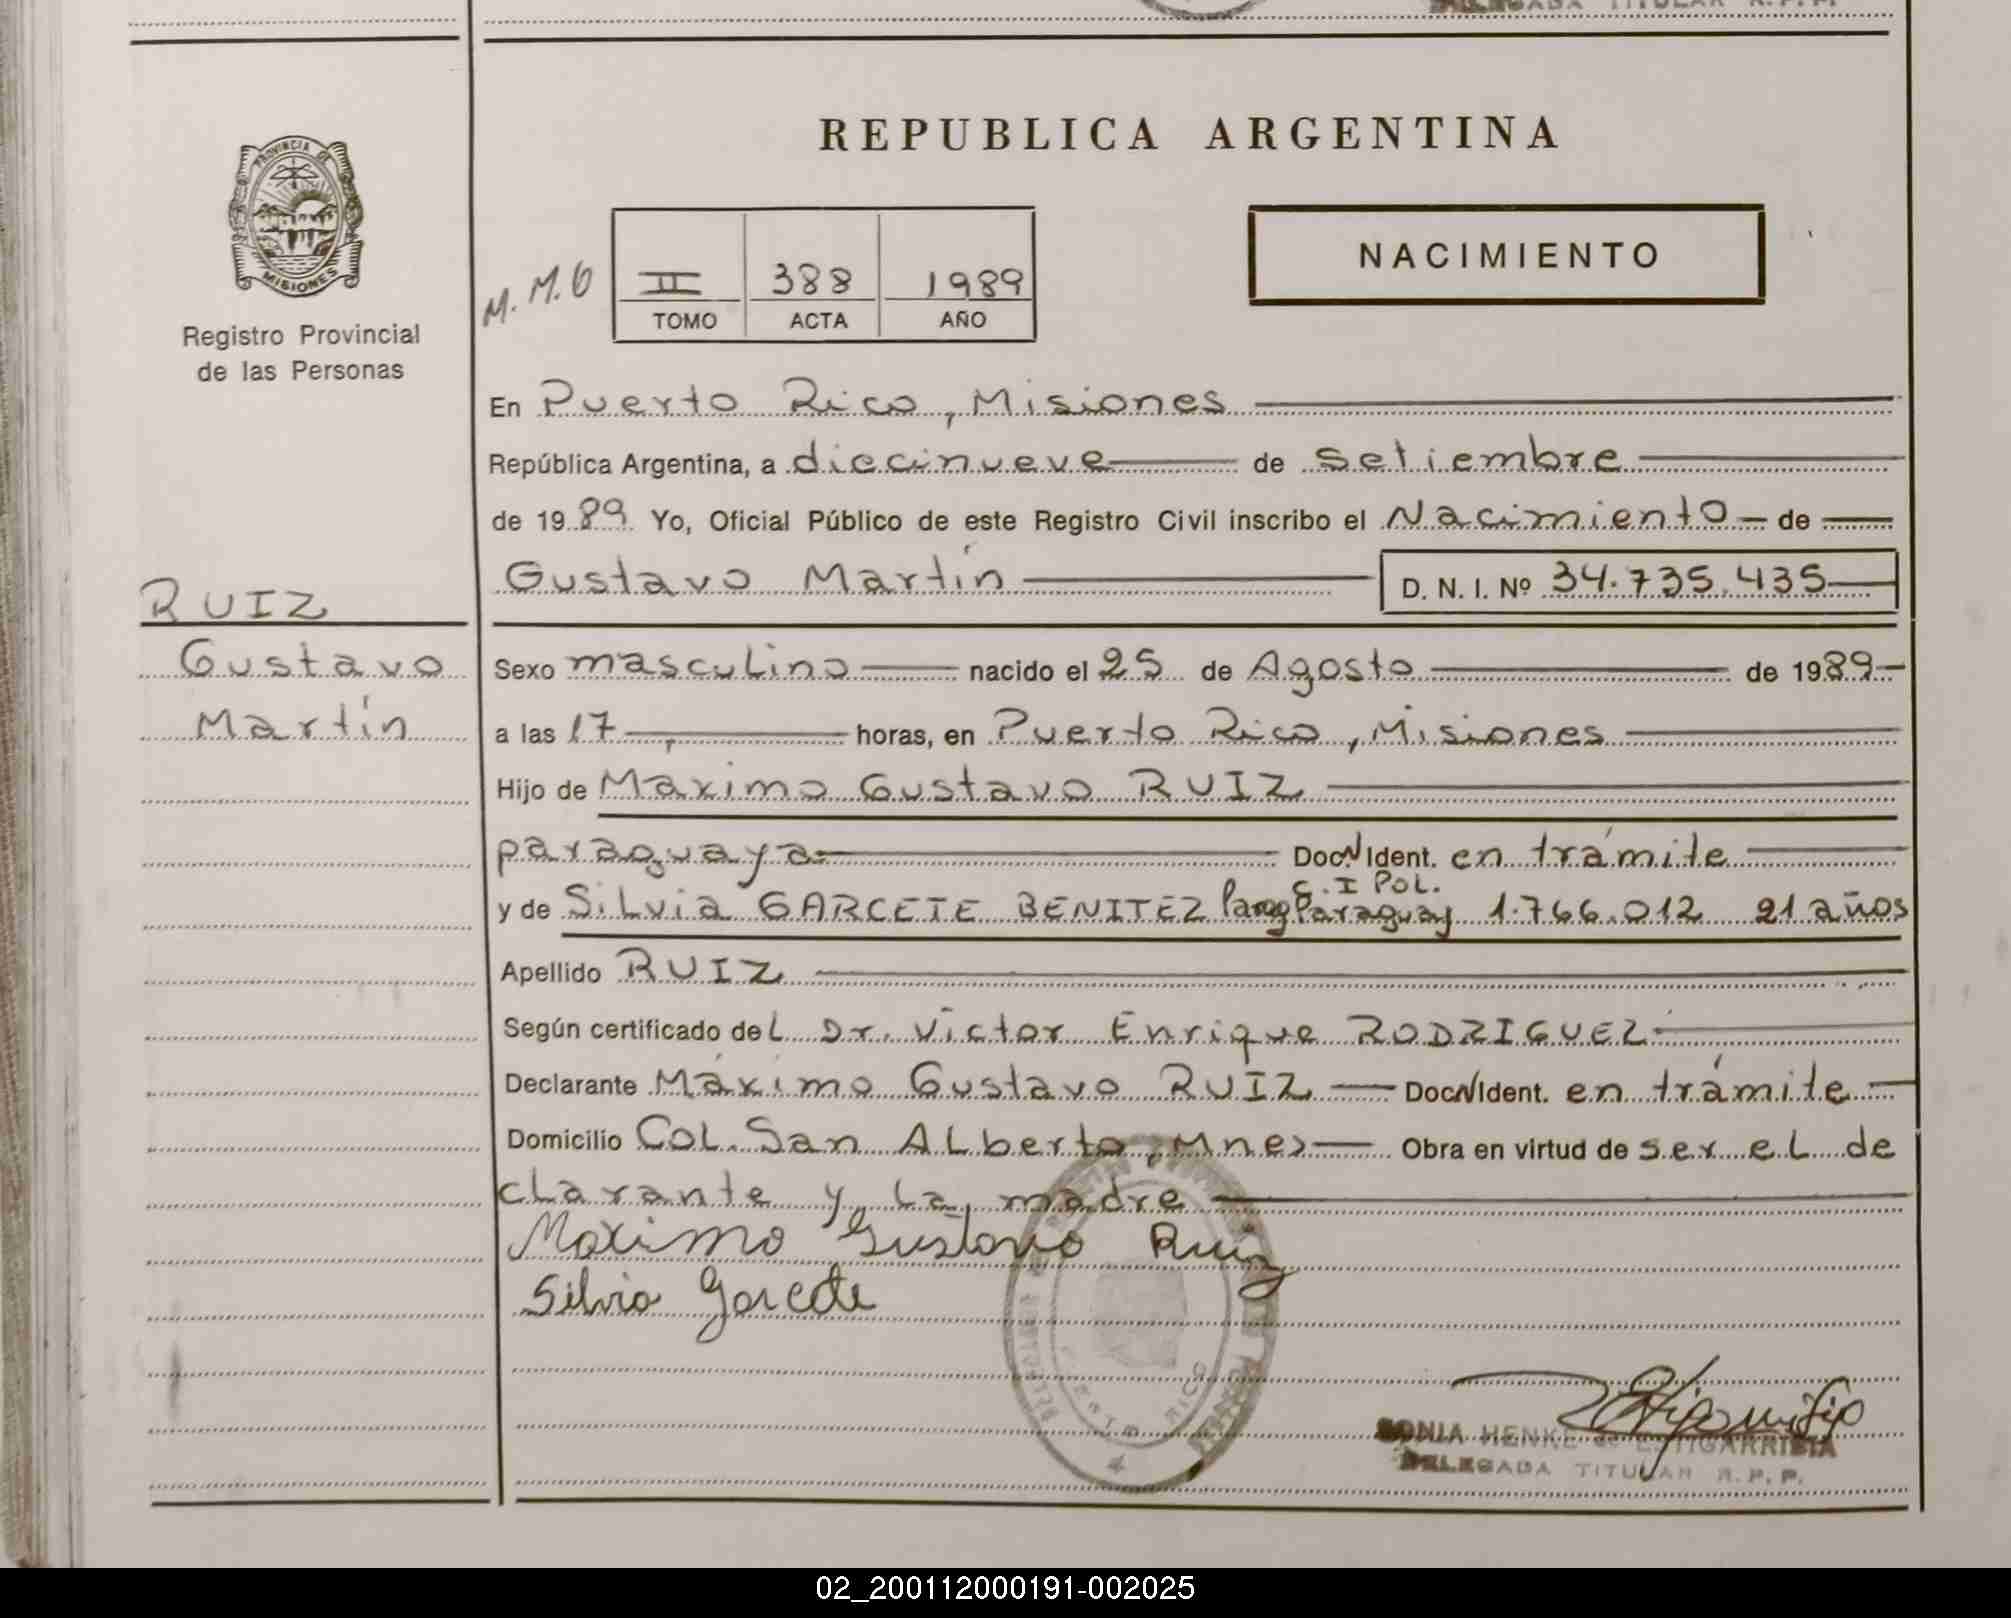 DELEGADA TITULAR R.P.P.
REPUBLICA ARGENTINA
PROVINCIA DE
MISIONES
Registro Provincial
de las Personas
M.M.G
II 388 1989
TOMO ACTA AÑO
NACIMIENTO
En Puerto Rico, Misiones
República Argentina, a diecinueve de setiembre
de 1989 Yo, Oficial Público de este Registro Civil inscribo el Nacimiento de
Gustavo Martín D. N. I. Nº 34.735.435
RUIZ
Gustavo
Martín
Sexo masculino nacido el 25 de Agosto de 1989
a las 17 horas, en Puerto Rico, Misiones
Hijo de Máximo Gustavo RUIZ
paraguaya Doc. Ident. en trámite
C.I POL.
y de Silvia GARCETE BENITEZ Parag Paraguay 1.766.012 21 años
Apellido RUIZ
Según certificado del Dr. Víctor Enrique RODRIGUEZ
Declarante Máximo Gustavo RUIZ Doc Ident. en trámite
Domicilio Col. San Alberto, Mnes Obra en virtud de ser el de
clarante y la madre
Maximo Gustavo Ruiz
Silvia Garcete
PUERTO RICO
SONIA HENKE de ESTIGARRIBIA
DELEGADA TITULAR R.P.P.
02_200112000191-002025